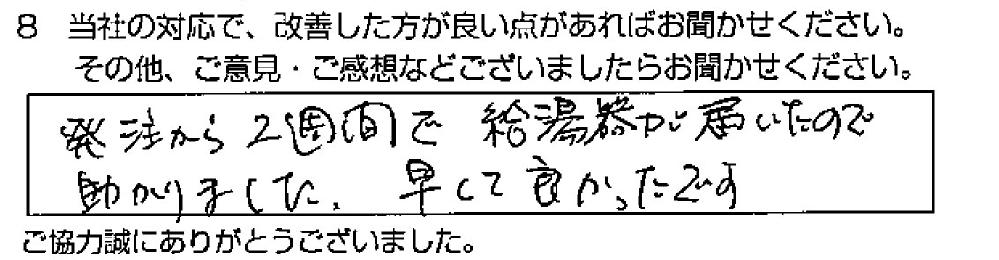 8 当社の対応で、改善した方が良い点があればお聞かせください。
その他、ご意見・ご感想などございましたらお聞かせください。
発注から2週間で給湯器が届いたので
助かりました、早くて良かったです
ご協力誠にありがとうございました。